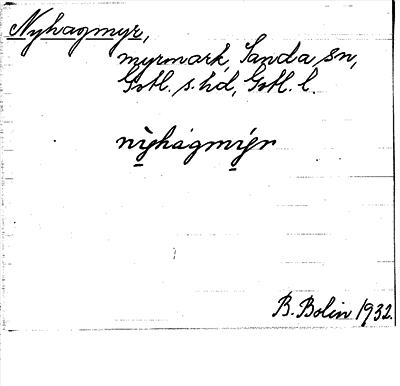 Nyhagmyr,
myrmark, Sanda sn,
Gotl. s. hd, Gotl. l.
nỳhágmýr
B. Bolin 1932.